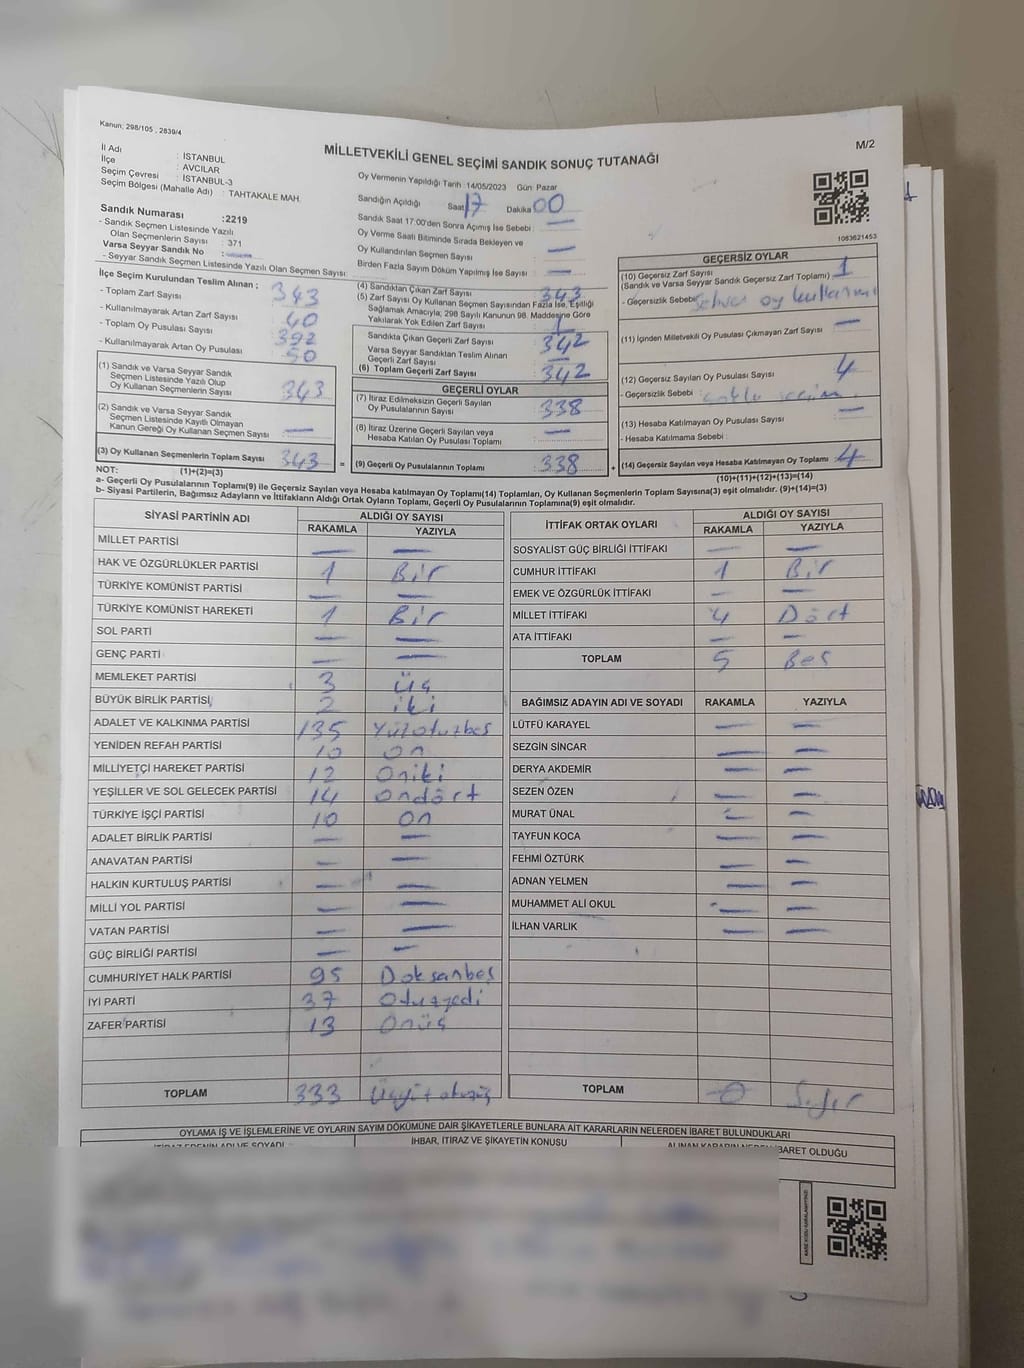 Kanun; 298/105 , 2839/4
MİLLETVEKİLİ GENEL SEÇİMİ SANDIK SONUÇ TUTANAĞI
M/2
İl Adı : İSTANBUL
İlçe : AVCILAR
Seçim Çevresi : İSTANBUL-3
Seçim Bölgesi (Mahalle Adı) : TAHTAKALE MAH.
Sandık Numarası :2219
- Sandık Seçmen Listesinde Yazılı
Olan Seçmenlerin Sayısı : 371
Varsa Seyyar Sandık No : —
- Seyyar Sandık Seçmen Listesinde Yazılı Olan Seçmen Sayısı:
Oy Vermenin Yapıldığı Tarih :14/05/2023 Gün: Pazar
Sandığın Açıldığı Saat 17 Dakika 00
Sandık Saat 17:00'den Sonra Açılmış İse Sebebi : —
Oy Verme Saati Bitiminde Sırada Bekleyen ve
Oy Kullandırılan Seçmen Sayısı : —
Birden Fazla Sayım Döküm Yapılmış İse Sayısı : —
1063621453
İlçe Seçim Kurulundan Teslim Alınan ;
- Toplam Zarf Sayısı : 343
- Kullanılmayarak Artan Zarf Sayısı : 40
- Toplam Oy Pusulası Sayısı : 392
- Kullanılmayarak Artan Oy Pusulası : 50
(1) Sandık ve Varsa Seyyar Sandık
Seçmen Listesinde Yazılı Olup
Oy Kullanan Seçmenlerin Sayısı : 343
(2) Sandık ve Varsa Seyyar Sandık
Seçmen Listesinde Kayıtlı Olmayan
Kanun Gereği Oy Kullanan Seçmen Sayısı : —
(3) Oy Kullanan Seçmenlerin Toplam Sayısı : 343
(4) Sandıktan Çıkan Zarf Sayısı : 343
(5) Zarf Sayısı Oy Kullanan Seçmen Sayısından Fazla İse, Eşitliği
Sağlamak Amacıyla; 298 Sayılı Kanunun 98. Maddesine Göre
Yakılarak Yok Edilen Zarf Sayısı : 1
Sandıkta Çıkan Geçerli Zarf Sayısı : 342
Varsa Seyyar Sandıktan Teslim Alınan
Geçerli Zarf Sayısı : —
(6) Toplam Geçerli Zarf Sayısı : 342
GEÇERLİ OYLAR
(7) İtiraz Edilmeksizin Geçerli Sayılan
Oy Pusulalarının Sayısı : 338
(8) İtiraz Üzerine Geçerli Sayılan veya
Hesaba Katılan Oy Pusulası Toplamı : —
= (9) Geçerli Oy Pusulalarının Toplamı : 338
GEÇERSİZ OYLAR
(10) Geçersiz Zarf Sayısı : 1
(Sandık ve Varsa Seyyar Sandık Geçersiz Zarf Toplamı)
- Geçersizlik Sebebi: oy kullanımı
(11) İçinden Milletvekili Oy Pusulası Çıkmayan Zarf Sayısı : —
(12) Geçersiz Sayılan Oy Pusulası Sayısı : 4
- Geçersizlik Sebebi : seçim.
(13) Hesaba Katılmayan Oy Pusulası Sayısı : —
- Hesaba Katılmama Sebebi :
+ (14) Geçersiz Sayılan veya Hesaba Katılmayan Oy Toplamı : 4
NOT: (1)+(2)=(3)
(10)+(11)+(12)+(13)=(14)
a- Geçerli Oy Pusulalarının Toplamı(9) ile Geçersiz Sayılan veya Hesaba katılmayan Oy Toplamı(14) Toplamları, Oy Kullanan Seçmenlerin Toplam Sayısına(3) eşit olmalıdır. (9)+(14)=(3)
b- Siyasi Partilerin, Bağımsız Adayların ve İttifakların Aldığı Ortak Oyların Toplamı, Geçerli Oy Pusulalarının Toplamına(9) eşit olmalıdır.
SİYASİ PARTİNİN ADI ALDIĞI OY SAYISI
RAKAMLA YAZIYLA
MİLLET PARTİSİ — —
HAK VE ÖZGÜRLÜKLER PARTİSİ 1 Bir
TÜRKİYE KOMÜNİST PARTİSİ — —
TÜRKİYE KOMÜNİST HAREKETİ 1 Bir
SOL PARTİ — —
GENÇ PARTİ — —
MEMLEKET PARTİSİ 3 üç
BÜYÜK BİRLİK PARTİSİ 2 iki
ADALET VE KALKINMA PARTİSİ 135 Yüzotuzbeş
YENİDEN REFAH PARTİSİ 10 on
MİLLİYETÇİ HAREKET PARTİSİ 12 Oniki
YEŞİLLER VE SOL GELECEK PARTİSİ 14 ondört
TÜRKİYE İŞÇİ PARTİSİ 10 on
ADALET BİRLİK PARTİSİ — —
ANAVATAN PARTİSİ — —
HALKIN KURTULUŞ PARTİSİ — —
MİLLİ YOL PARTİSİ — —
VATAN PARTİSİ — —
GÜÇ BİRLİĞİ PARTİSİ — —
CUMHURİYET HALK PARTİSİ 95 Doksanbeş
İYİ PARTİ 37 Otuzyedi
ZAFER PARTİSİ 13 Onüç
TOPLAM 333
İTTİFAK ORTAK OYLARI ALDIĞI OY SAYISI
RAKAMLA YAZIYLA
SOSYALİST GÜÇ BİRLİĞİ İTTİFAKI — —
CUMHUR İTTİFAKI 1 Bir
EMEK VE ÖZGÜRLÜK İTTİFAKI — —
MİLLET İTTİFAKI 4 Dört
ATA İTTİFAKI — —
TOPLAM 5 Beş
BAĞIMSIZ ADAYIN ADI VE SOYADI RAKAMLA YAZIYLA
LÜTFÜ KARAYEL — —
SEZGİN SİNCAR — —
DERYA AKDEMİR — —
SEZEN ÖZEN — —
MURAT ÜNAL — —
TAYFUN KOCA — —
FEHMİ ÖZTÜRK — —
ADNAN YELMEN — —
MUHAMMET ALİ OKUL — —
İLHAN VARLIK — —
TOPLAM 0 Sıfır
OYLAMA İŞ VE İŞLEMLERİNE VE OYLARIN SAYIM DÖKÜMÜNE DAİR ŞİKAYETLERLE BUNLARA AİT KARARLARIN NELERDEN İBARET BULUNDUKLARI
İTİRAZ EDENİN ADI VE SOYADI İHBAR, İTİRAZ VE ŞİKAYETİN KONUSU ALINAN KARARIN NEDEN İBARET OLDUĞU